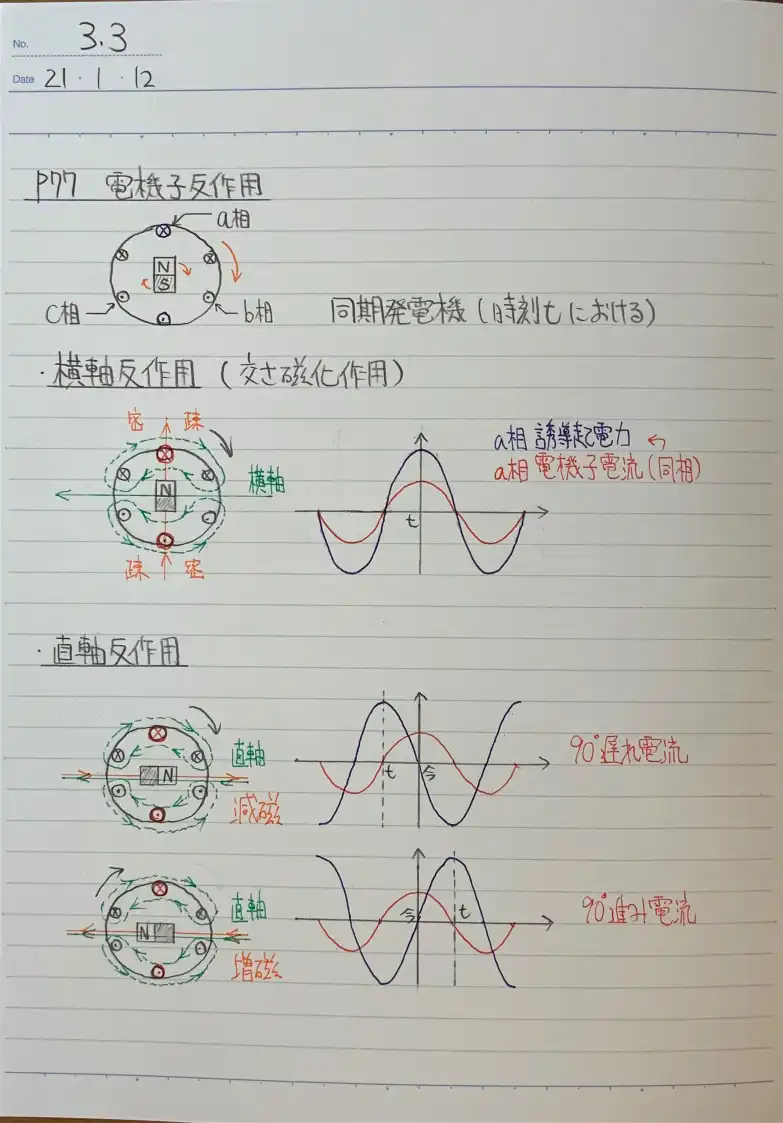 No. 3.3
Date 21・1・12
P77 電機子反作用
a相
N
S
c相
b相
同期発電機(時刻tにおける)
・横軸反作用(交さ磁化作用)
密 疎
N
横軸
疎 密
a相 誘導起電力
a相 電機子電流(同相)
t
・直軸反作用
N
直軸
減磁
t 今
90°遅れ電流
N
直軸
増磁
今 t
90°進み電流